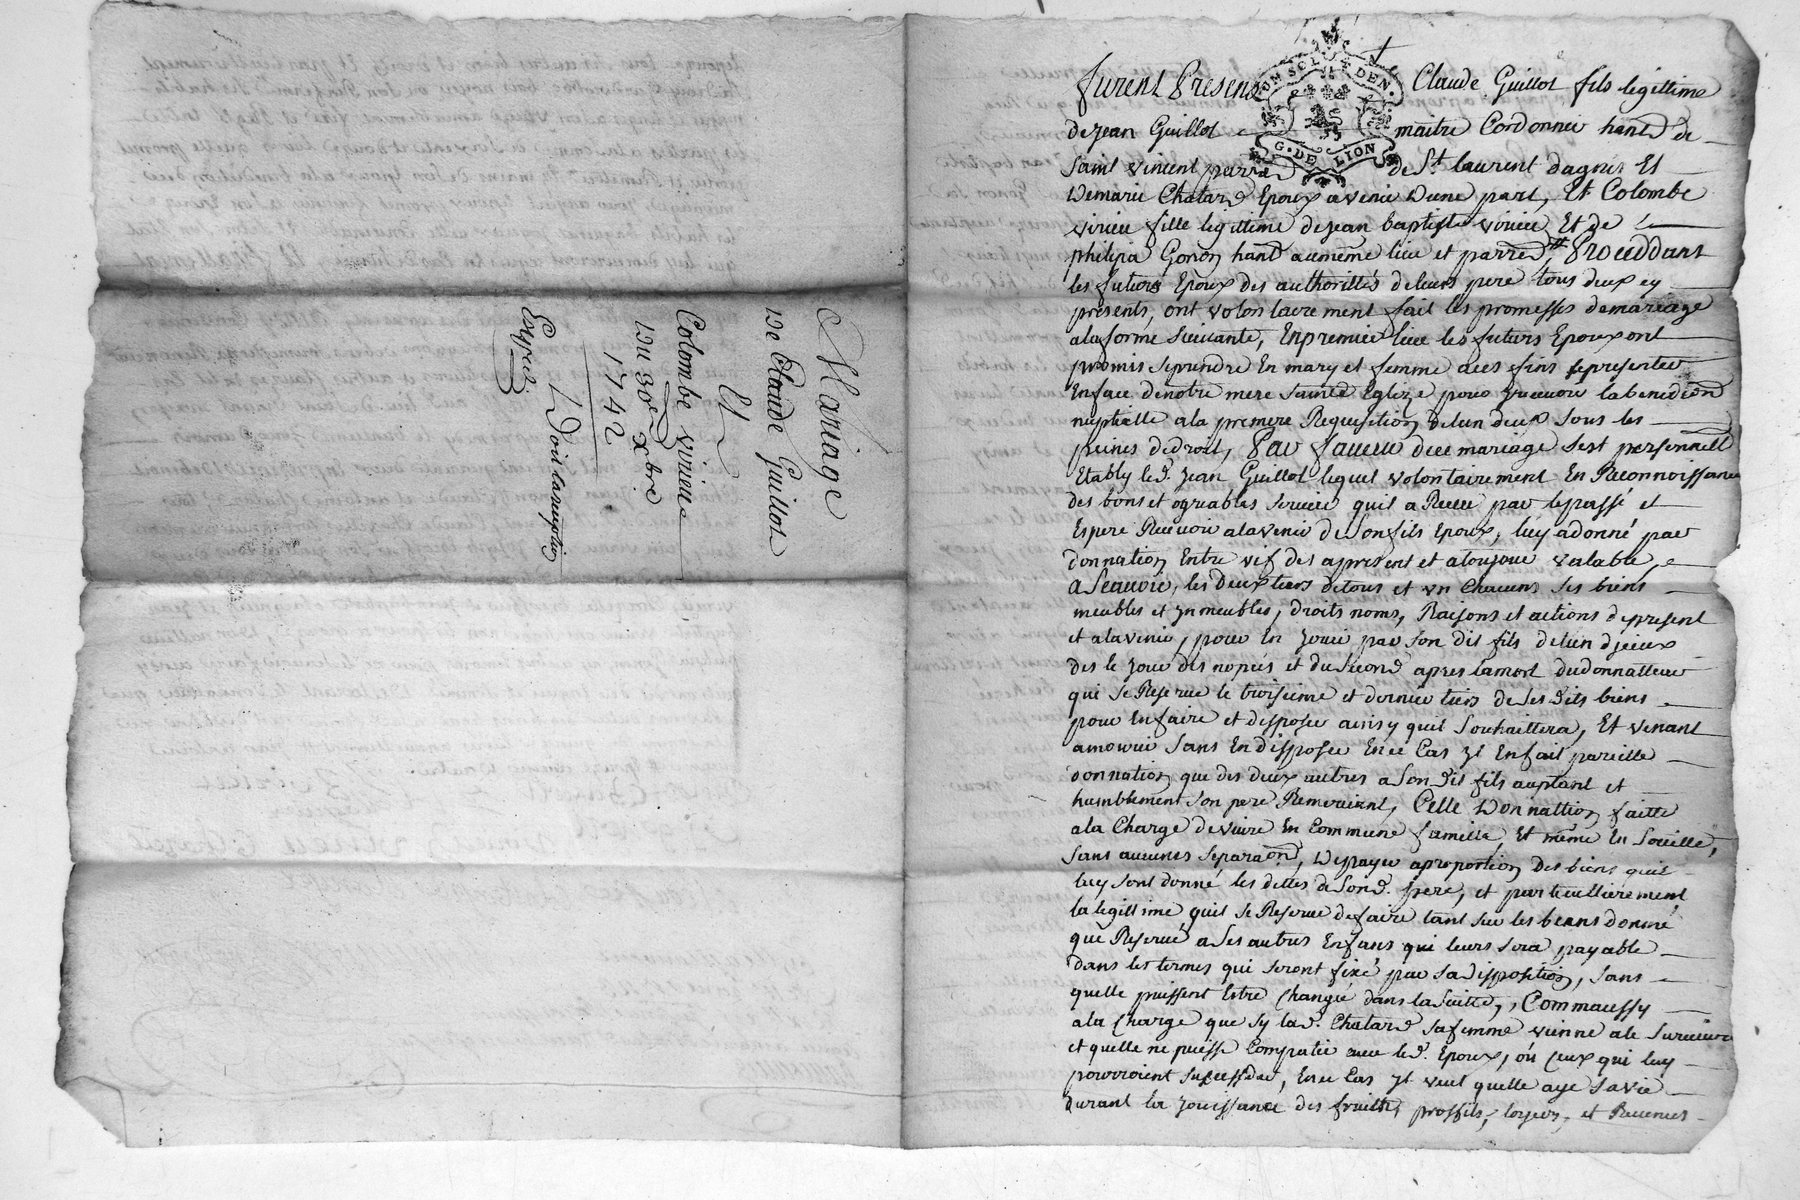 Mariage
De Claude Guillot
Et
Colombe virieu
Du 30e Xbre
1742
Doit lareception
Expedié
UN SOL SIX DEN.
G. DE LION
furent Presens Claude Guillot fils legittime
de jean Guillot maitre Cordonnier hantd de
saint vincent parred de St laurent dagnis Et
De marie Chatard Epoux avenir Dune part, Et Colombe
virieu fille legittime de jean baptiste virieu Et de
philipa Gonon hantd aumême lieu et parred, Proceddans
les futurs Epoux des authorittés deleurs pere tous deux ey
présents, ont volontairement fait les promesses demariage
alaforme suivante, Enpremier lieu les futurs Epoux ont
promis seprendre En mary et femme aces fins sepresenter
Enface denotre mere sainte Eglize pour y recevoir labenediction
nuptialle ala premere Requisition delun deux sous les
peines dedroit, Par faveur dece mariage sest personnell
Etably led. jean Guillot lequel volontairement En Reconnoissance
des bons et agréables service quil a Receu par lepassé et
Espere Recevoir alavenir desonfils Epoux, luy adonné par
donnation Entre vif des apresent et atoujour valable,
ascavoir, les deux tiers detous et un Chacuns ses biens
meubles et ynmeubles, droits noms, Raisons et actions depresent
et alavenir, pour En jouir par son dit fils delun diceux
des le jour des nopces et dusecond apres lamort dudonnatteur
qui se Reserve le troisieme et dernier tiers de ses dits biens
pour Enfaire et dissposer ainsy quil souhaittera, Et venant
amourir sans En dissposer Ence Cas yl Enfait pareille
donnation que des deux autres ason dit fils auptant et
humblement son pere Remerciant, Celle Donnattion faitte
ala Charge devivre En Commune famille, Et même En soceitte,
sans aucunes separaon, Depayer aproportion des biens quil
luy sont donné les dettes deson d. pere, et particullierement
la legittime quil se Reserve defaire tant sur les biens donné
que Reservé ases autres Enfans qui leurs sera payable
dans les termes qui seront fixé par sa dissposition, sans
quelle puissent Estre changée dans lasuitte, Commaussy
ala Charge que sy lad. Chatard safemme vienne ale survivre
et quelle ne puisse Compatir avec led. Epoux, où ceux qui luy
pourroient succeder, Ence Cas yl veut quelle aye savie
durant la jouissance des fruitts, proffits, loyers, et Revenues